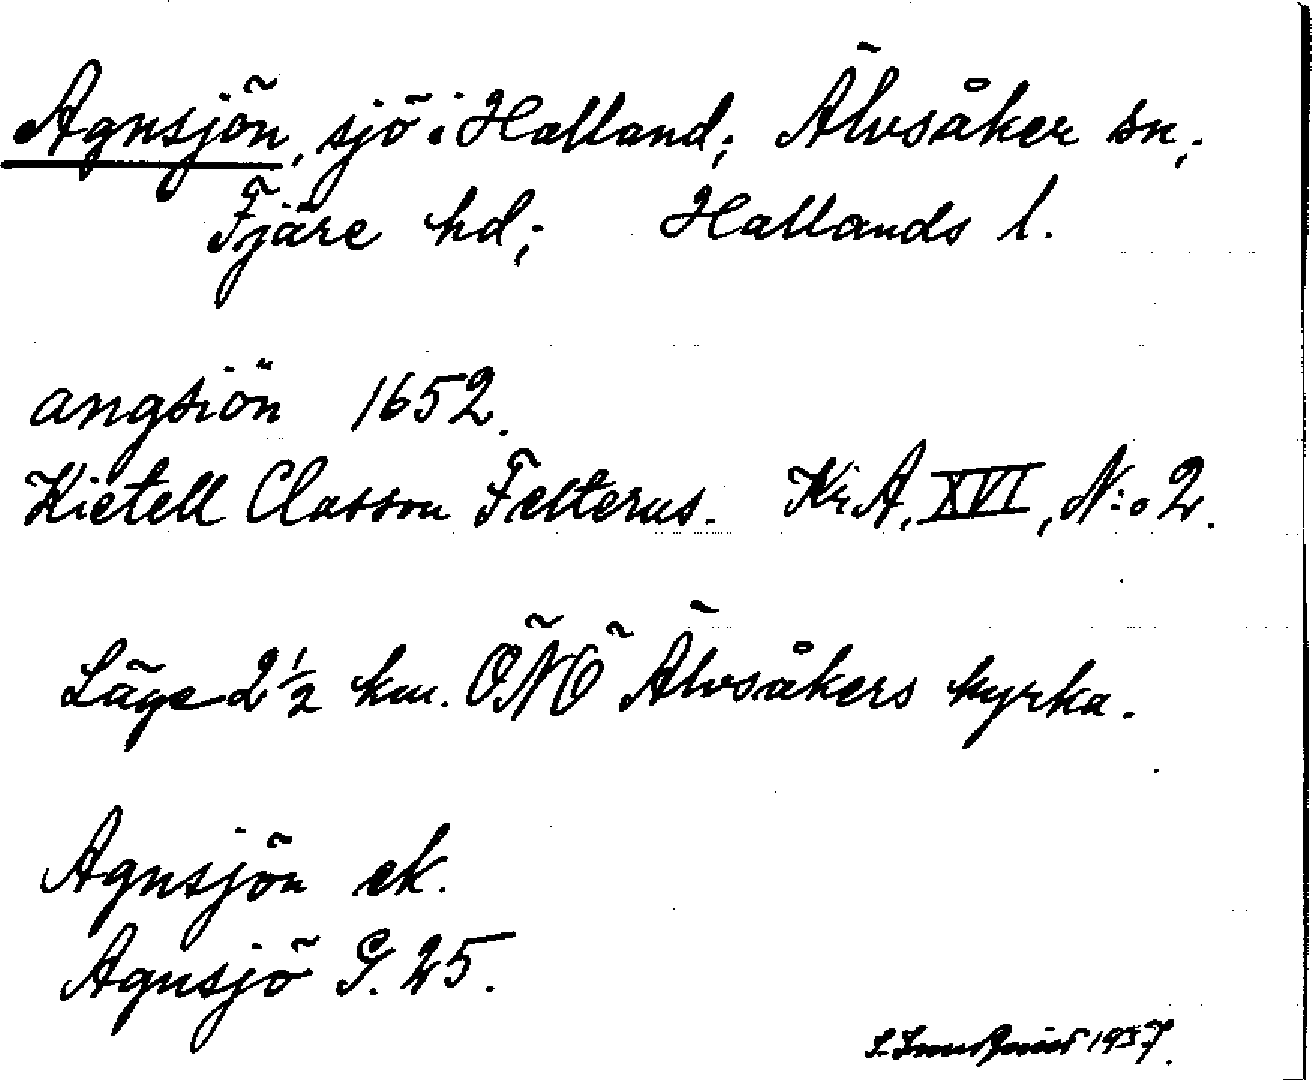 Agnsjön, sjö i Halland; Älvsåker sn;
Fjäre hd; Hallands l.
angsiön 1652.
Kietell Classon Felterus. Kr.A. XVI, N:o 2.
Läge 2½ km. ÖNÖ Älvsåkers kyrka.
Agnsjön ek.
Agnsjö G. 25.
1937.